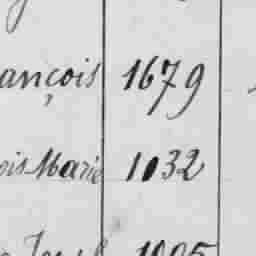 ançois 1679
ois Marie 1032
1005